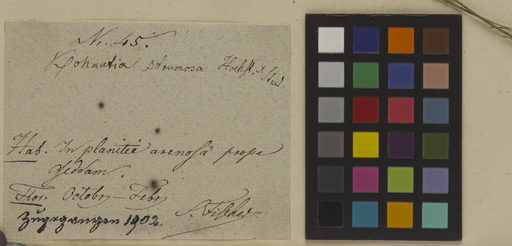 Nr. 45.
Kohautia strumosa Hochst. & Steud.
Hab. In planitie arenosâ prope
Geddam.
Flor. Octobr - Febr.
Zugegangen 1902. S. Fischer